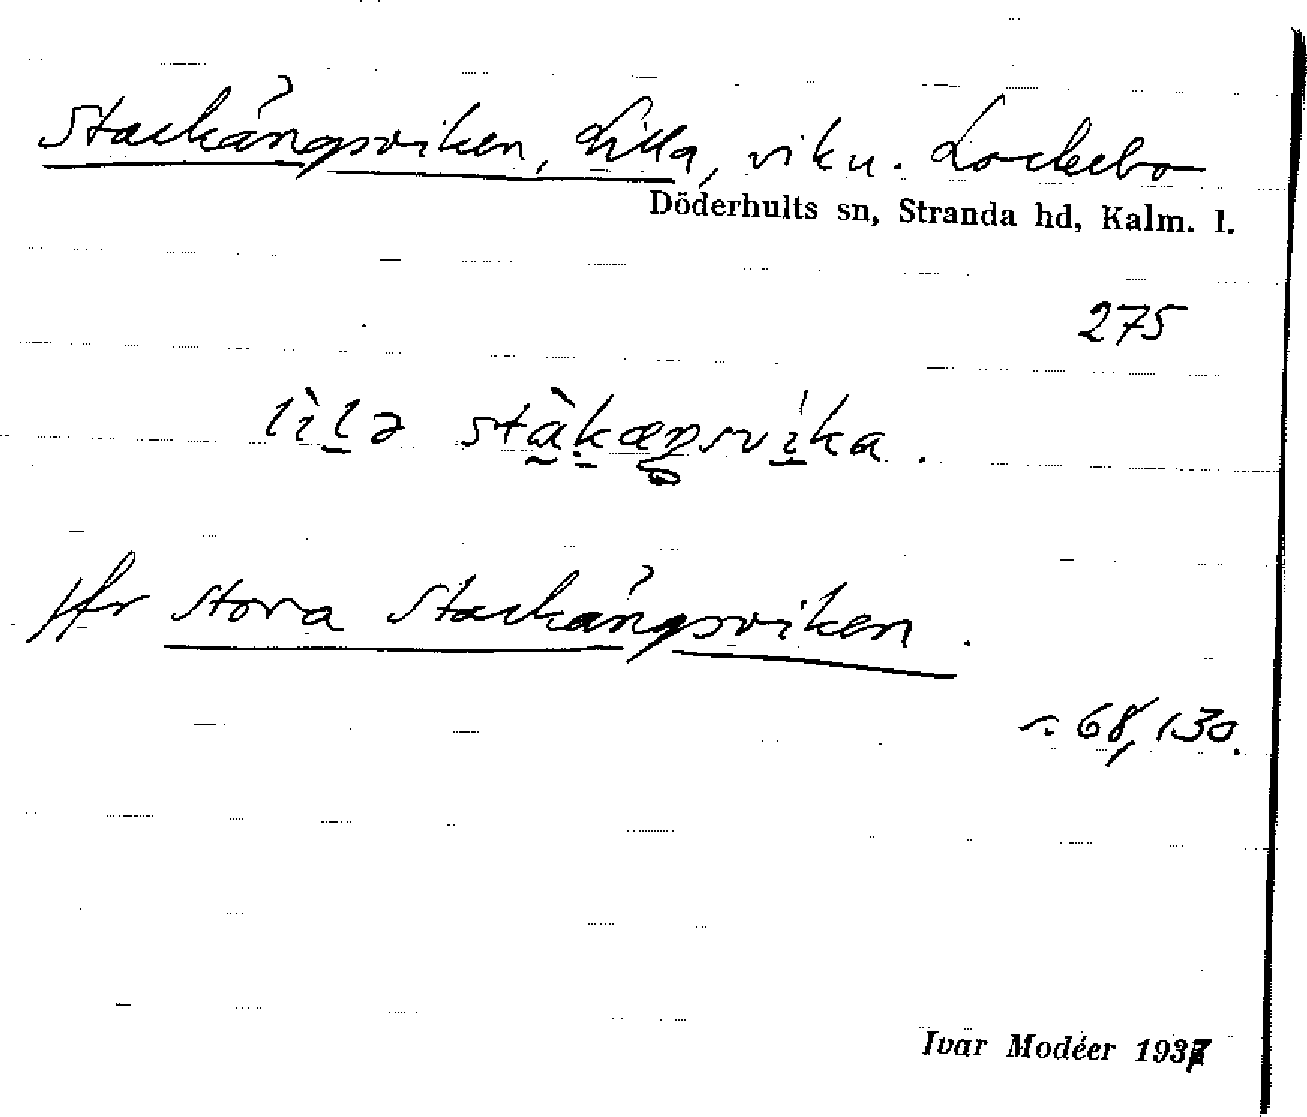 Stackängsviken, Lilla, viku. Lockebo
Döderhults sn, Stranda hd, Kalm. l.
275
lìlə stàkæŋsvika.
Jfr Stora Stackängsviken.
68, 130.
Ivar Modéer 1937